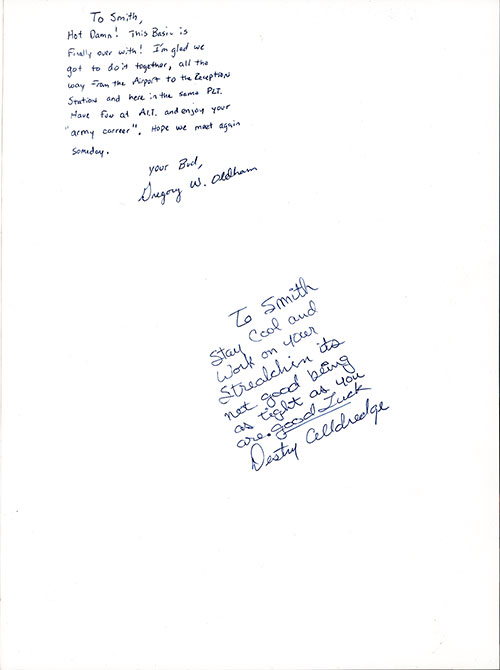 To Smith,
Hot Damn! This Basic is
Finally over with! I'm glad we
got to do it together, all the
way From the Airport to the Reception
Station and here in the same PLT.
Have Fun at AIT. and enjoy your
"army carreer". Hope we meet again
Someday.
your Bud,
Gregory W. Oldham
To Smith
Stay Cool and
Work on your
Strealchin its
not good being
as tight as you
are. good Luck
Destry